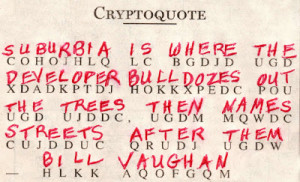 CRYPTOQUOTE
SUBURBIA IS WHERE THE
COHOJHLQ LC BGDJD UGD
DEVELOPER BULLDOZES OUT
XDADKPTDJ HOKKXPEDC POU
THE TREES THEN NAMES
UGD UJDDC, UGDM MQWDC
STREETS AFTER THEM
CUJDDUC QRUDJ UGDW
BILL VAUGHAN
— HLKK AQOFGQM